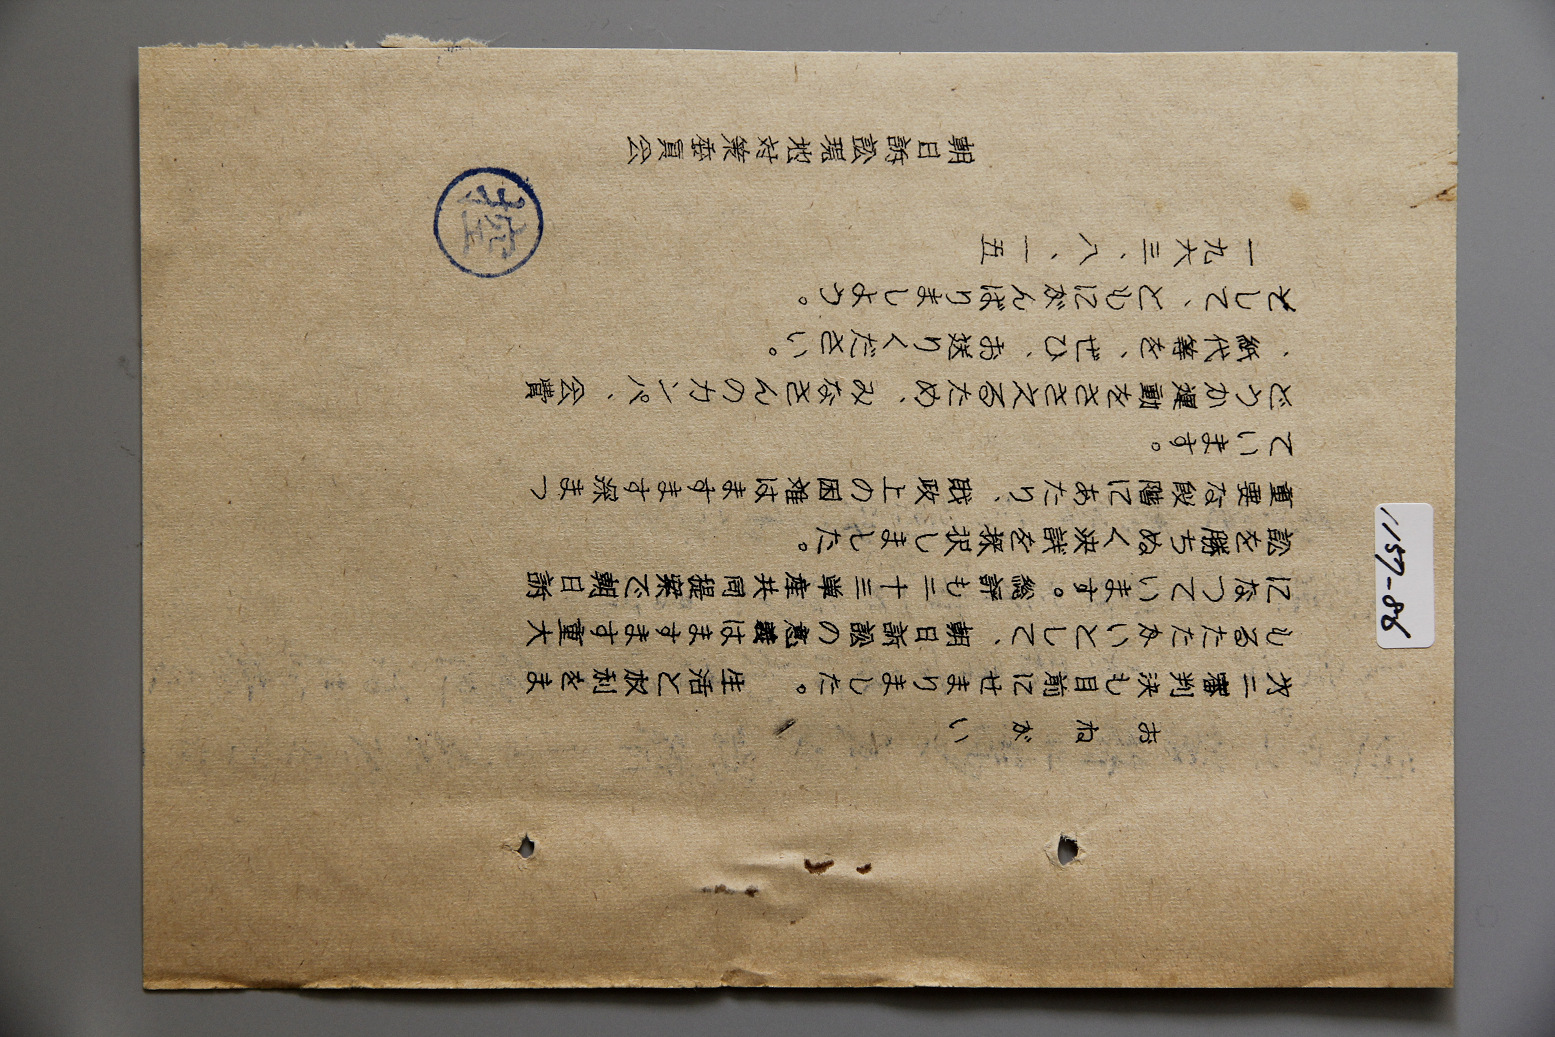 おねがい
才二審判決も目前にせまりました。 生活と权利をま
もるたたかいとして、朝日訴訟の意義はますます重大
になっています。総評も二十三単産共同提案で朝日訴
訟を勝ちぬく決議を採択しました。
重要な段階にあたり、財政上の困難はますます深まっ
ています。
どうか運動をささえるため、みなさんのカンパ、会費
、紙代等を、ぜひ、お送りください。
そして、ともにがんばりましょう。
一九六三、八、一五
朝日訴訟現地対策委員会
控
1157-86